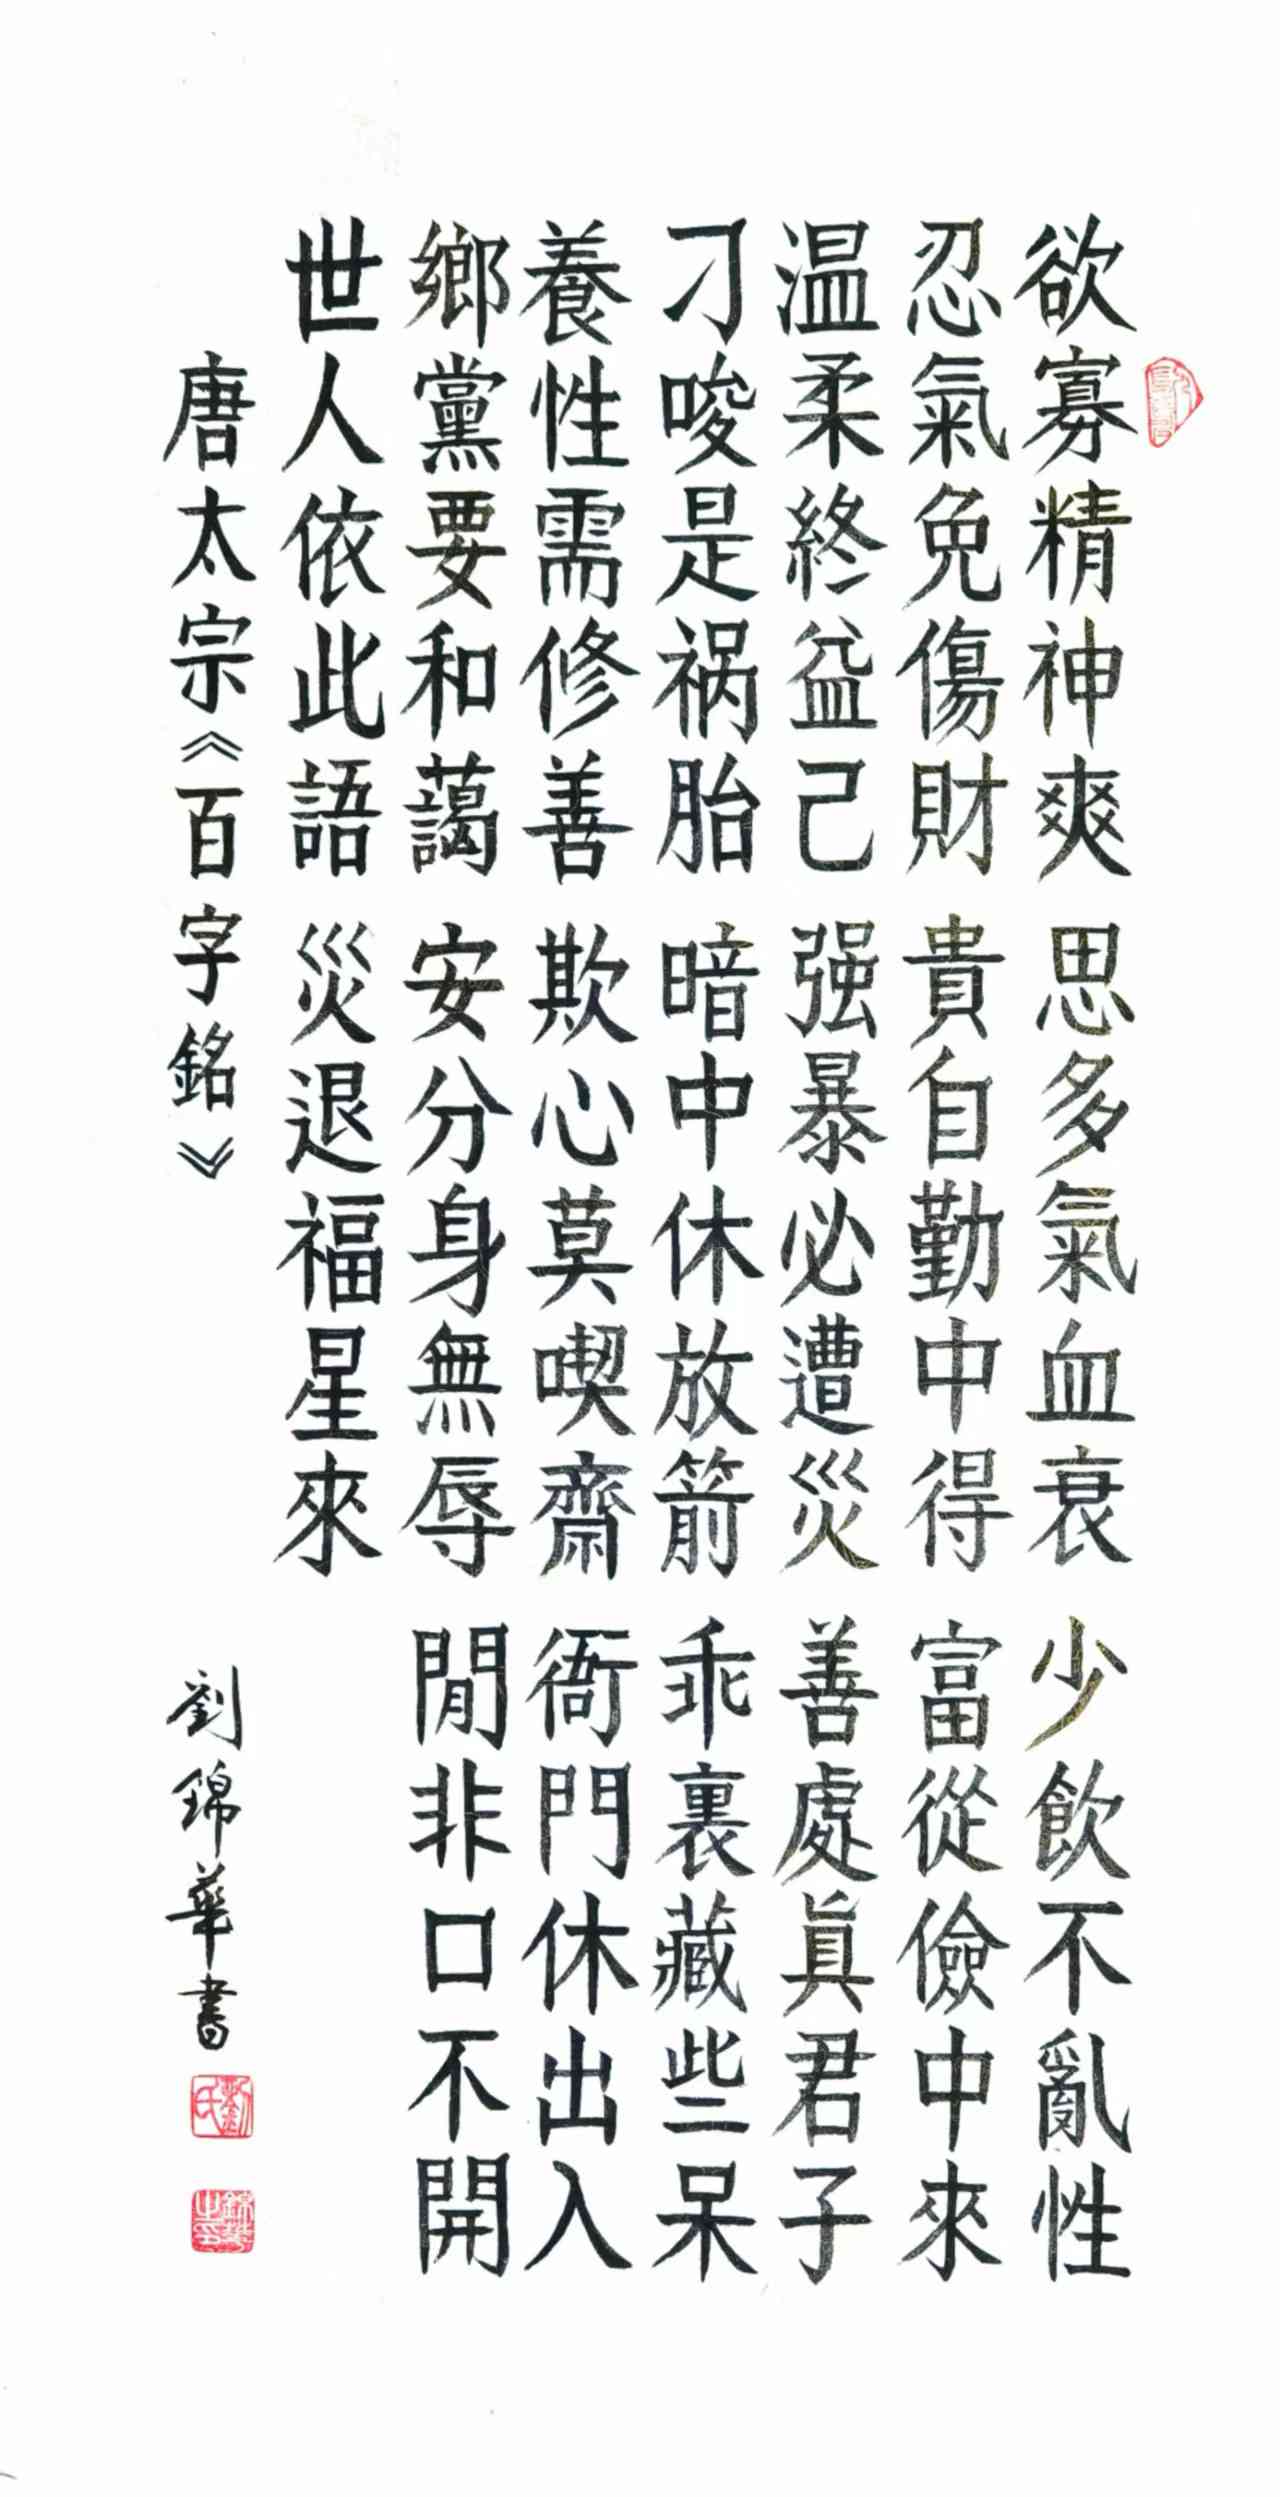 欲寡精神爽 思多氣血衰 少飲不亂性
忍氣免傷財 貴自勤中得 富從儉中來
温柔終益己 强暴必遭災 善處真君子
刁唆是祸胎 暗中休放箭 乖裏藏些呆
養性需修善 欺心莫喫齋 衙門休出入
鄉黨要和藹 安分身無辱 閒非口不開
世人依此語 災退福星來
唐太宗《百字銘》
劉錦華書
劉氏
錦華之印